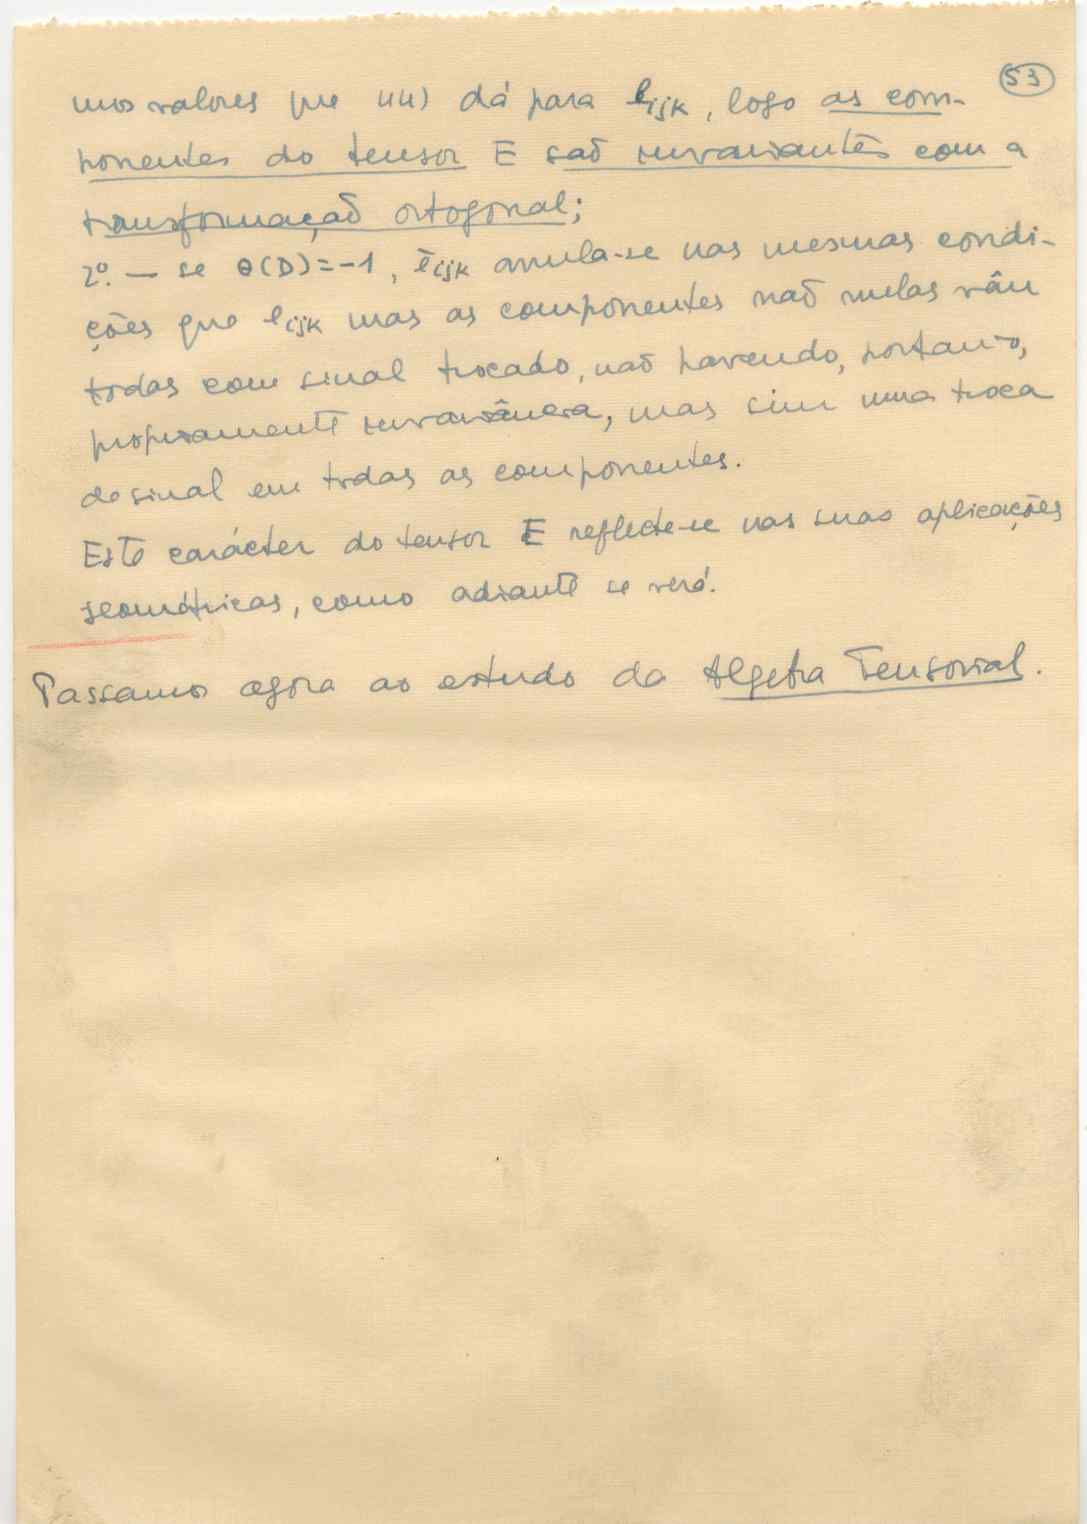 53
mos valores que 44) dá para eijk, logo as com-
ponentes do tensor E são invariantes com a
transformação ortogonal;
2º. — se θ(D)=-1, ēijk anula-se nas mesmas condi-
ções que eijk mas as componentes não nulas vêm
todas com sinal trocado, não havendo, portanto,
propriamente invariância, mas sim uma troca
de sinal em todas as componentes.
Este carácter do tensor E reflecte-se nas suas aplicações
geométricas, como adiante se verá.
Passamos agora ao estudo da Algebra Tensorial.